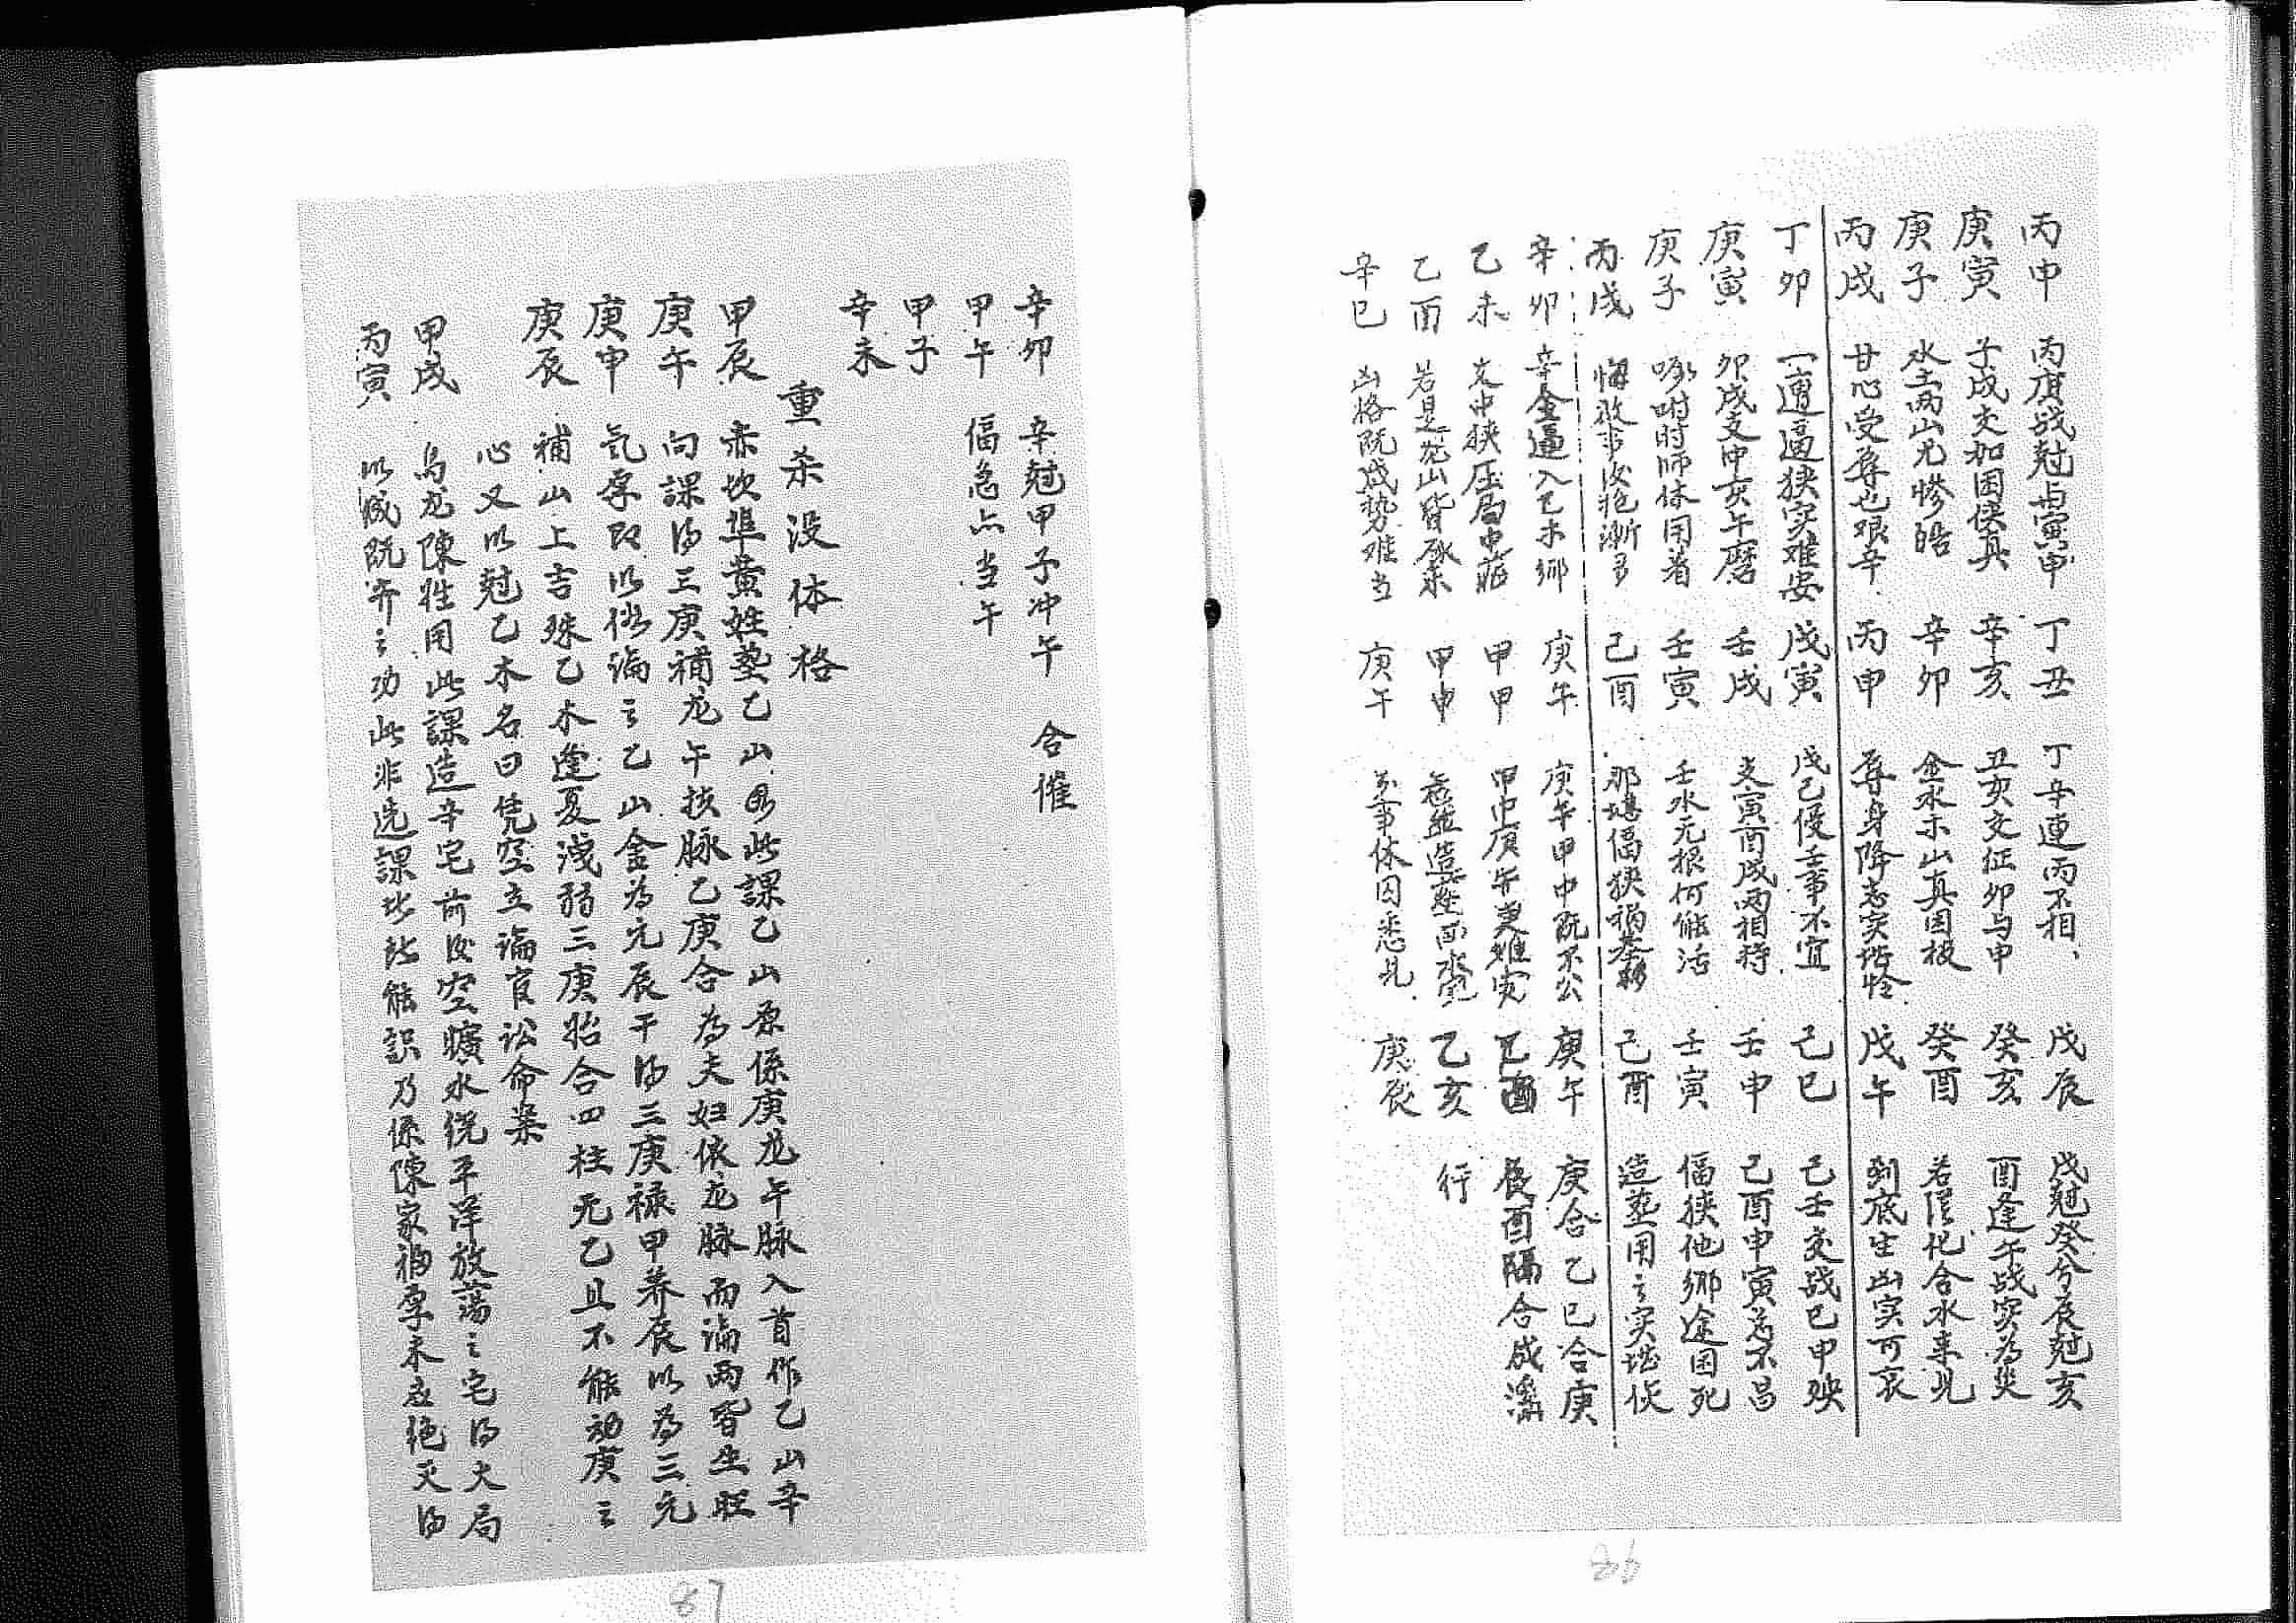 丙申 丙庚战尅与寅申 丁丑 丁辛連丙不相、 戊辰 戊尅癸兮辰尅亥
庚寅 子戌交加困侯真 辛亥 丑亥交征卯与申 癸亥 酉逢午战实為災
庚子 水土两山尤惨皓 辛卯 金水木山真困极 癸酉 若僅化合水来兆
丙戌 甘心受辱也艰辛 丙申 辱身降志实堪怜 戊午 到底生凶实可哀
丁卯 一遭逼狭实难安 戊寅 戊己侵壬事不宜 己巳 己壬交战巳申殃
庚寅 卯戌支中亥午磨 壬戌 支寅酉戌两相持 壬申 己酉申寅总不昌
庚子 吩咐时师休用着 壬寅 壬水无根何能活 壬寅 偪狭他鄉途困死
丙戌 悔改事後疤漸多 己酉 那堪偪狭祸基移 己酉 造塟用之实堪伏
辛卯 辛金逼入乙木鄉 庚午 庚午甲申既不公 庚午 庚合乙巳合庚
乙未 支中狭压局中蔵 甲申 甲申庚午更难安 乙酉 辰酉隔合成
乙酉 若是龙山皆 甲申 造塟 乙亥 行
辛巳 凶格既成势难当 庚午 万事休囚悉兆 庚辰
86
辛卯 辛尅甲子冲午 合催
甲午 偪急点当午
甲子
辛未
重杀没体格
甲辰 赤坎埠黄姓塟乙山因此課乙山原係庚龙午脉入首作乙山辛
庚午 向課得三庚補龙午扶脉乙庚合為夫妇依龙脉而論两皆生旺
庚申 气厚改以俗論言乙山金為元辰干得三庚禄甲养辰以為三元
庚辰 補山上吉殊乙木逢夏浅弱三庚貽合四柱无乙且不能动庚之
心又以尅乙木名曰凭空立論官讼命案
甲戌 乌龙陳姓用此課造辛宅前後空曠水绕平洋放蕩之宅得大局
丙寅 以城既齐之功此非选課比能識乃係陳家福厚未应绝灭得
87